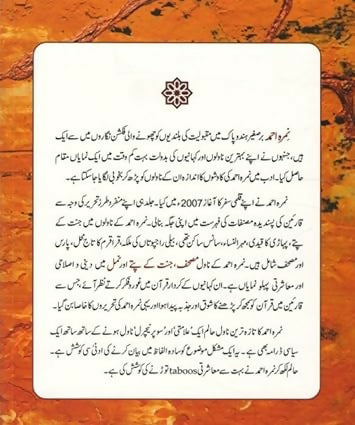 نمرہ احمد برصغیر ہند و پاک میں مقبولیت کی بلندیوں کو چھونے والی فکشن نگاروں میں سے ایک
ہیں، جنہوں نے اپنے بہترین ناولوں اور کہانیوں کی بدولت بہت کم وقت میں ایک نمایاں مقام
حاصل کیا۔ ادب میں نمرہ احمد کی کاوشوں کا اندازہ ان کے ناولوں کو پڑھ کر بخوبی لگایا جا سکتا ہے۔
نمرہ احمد نے اپنے قلمی سفر کا آغاز 2007ء میں کیا۔ جلد ہی اپنے منفرد طرز تحریر کی وجہ سے
قارئین کی پسندیدہ مصنفات کی فہرست میں اپنی جگہ بنالی۔ نمرہ احمد کے ناولوں میں جنت کے
پتے، پہاڑی کا قیدی، مہرالنساء، سانس ساکن تھی، بیلی راجپوتاں کی ملکہ، قراقرم کا تاج محل، پارس
اور مصحف شامل ہیں۔ نمرہ احمد کے ناول مصحف، جنت کے پتے اور نمل میں دینی و اصلاحی
اور معاشرتی پہلو نمایاں ہے۔ ان کہانیوں کے کردار قرآن میں غور و فکر کرتے نظر آتے ہیں جس سے
قارئین میں قرآن کو سمجھ کر پڑھنے کا شوق اور جذبہ پیدا ہوا اور یہی نمرہ احمد کی تحریروں کا خاصا بن گیا۔
نمرہ احمد کا تازہ ترین ناول حالم ایک علامتی اور سوپر نیچرل ناول ہونے کے ساتھ ساتھ ایک
سیاسی ڈرامہ بھی ہے۔ یہ ایک مشکل موضوع کو سادہ الفاظ میں بیان کرنے کی ادنیٰ سی کوشش ہے۔
حالم لکھ کر نمرہ احمد نے بہت سے معاشرتی taboos توڑنے کی کوشش کی ہے۔